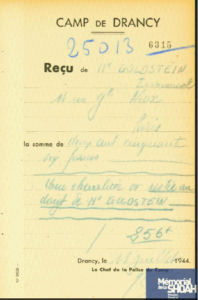 CAMP DE DRANCY
25013 6315
Reçu de Mr GOLDSTEIN
Paris
la somme de deux cent cinquante
six francs
Une chevalière or usée au
doigt de Mr GOLDSTEIN
256f
Drancy, le juillet 1944.
Le Chef de la Police du Camp
Mémorial
de la
SHOAH